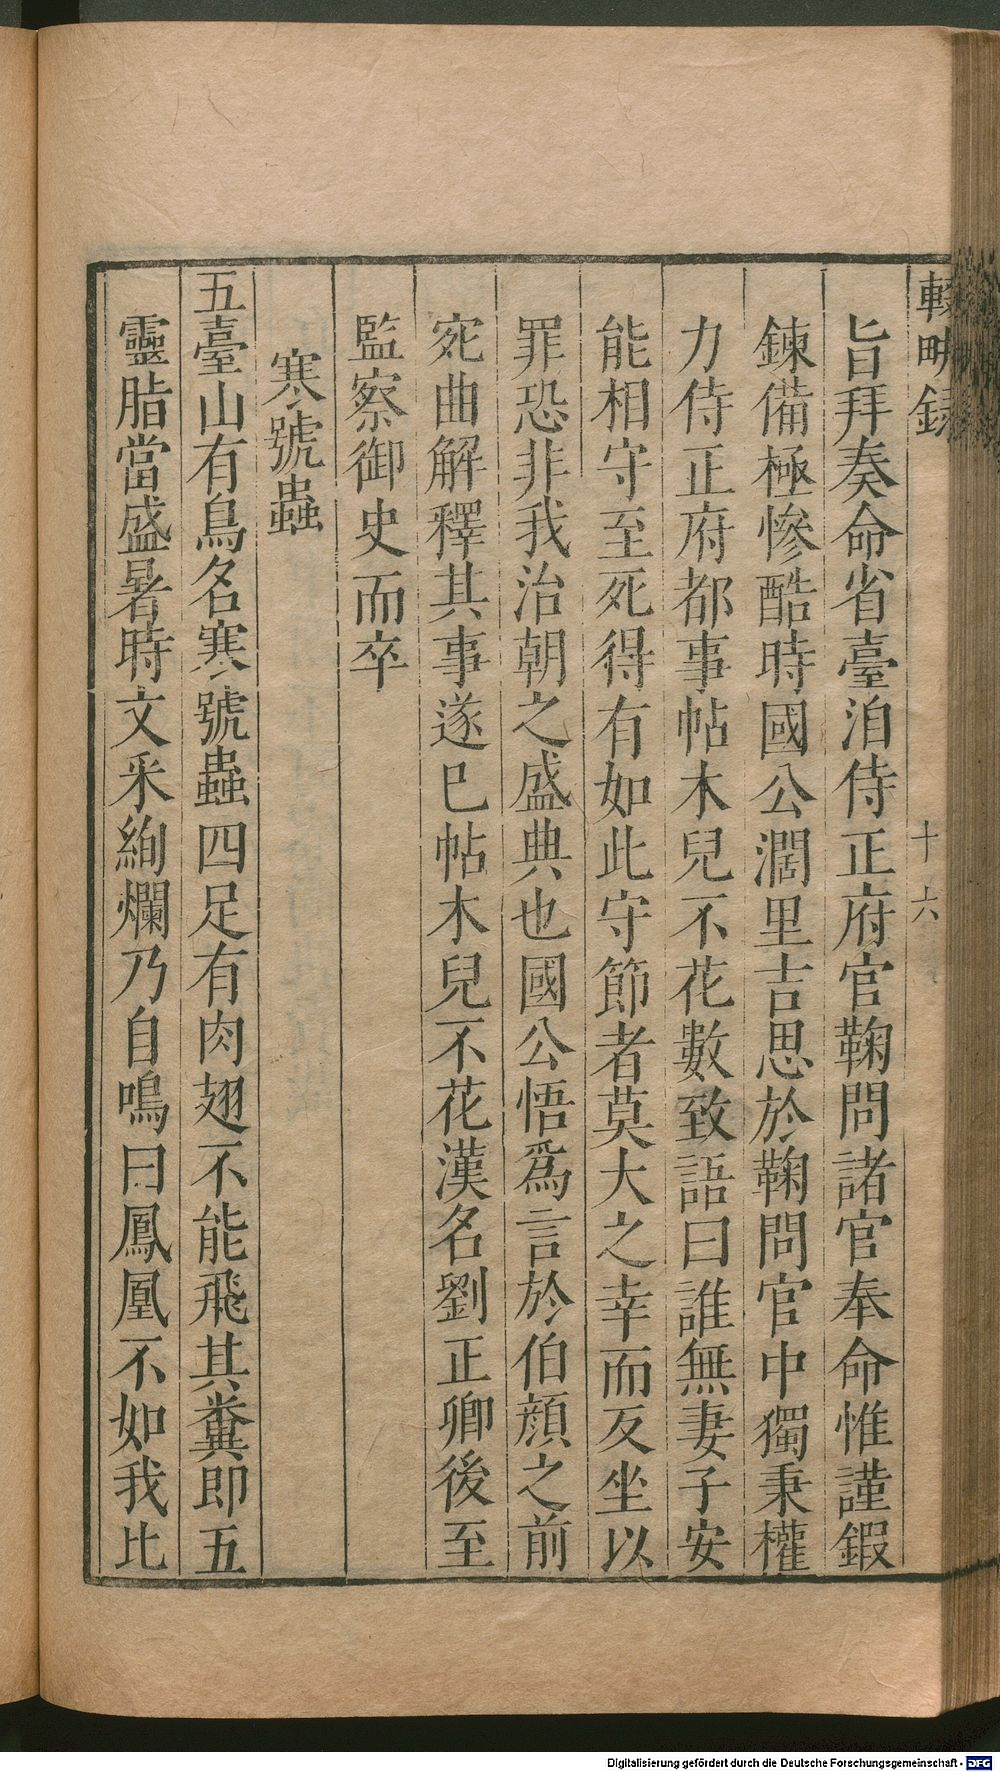 輟畊錄
十六
旨拜奏命省臺洎侍正府官鞠問諸官奉命惟謹鍜
鍊備極慘酷時國公濶里吉思於鞠問官中獨秉權
力侍正府都事帖木兒不花數致語曰誰無妻子安
能相守至死得有如此守節者莫大之幸而反坐以
罪恐非我治朝之盛典也國公悟爲言於伯顔之前
宛曲解釋其事遂已帖木兒不花漢名劉正卿後至
監察御史而卒
寒號蟲
五臺山有鳥名寒號蟲四足有肉翅不能飛其糞即五
靈脂當盛暑時文采絢爛乃自鳴曰鳳凰不如我比
Digitalisierung gefördert durch die Deutsche Forschungsgemeinschaft - DFG